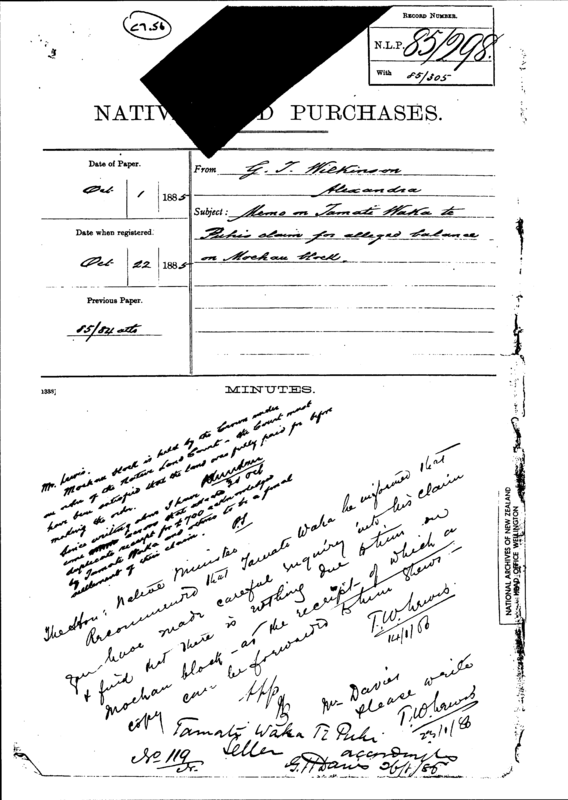 C7.56
RECORD NUMBER.
N.L.P. 85/298.
With 85/305
NATIV D PURCHASES.
Date of Paper.
Oct 1 1885
Date when registered.
Oct 22 1885
Previous Paper.
85/84 atts
From G. T. Wilkinson
Alexandra
Subject: Memo on Tamati Waka te
Puhis claim for alleged balance
on Moehau block.
1338]
MINUTES.
Mr. Lewis.
Moehau block is held by the Crown under
an order of the Native Land Court - the Court must
have been satisfied that the land was fully paid for before
making the order.
Since writing above I have
duplicate receipt for £700 acknowledged
by Tamati Waka and others to be a final
settlement of their claim.
The Hon: Native Minister
Recommended that Tamati Waka be informed that
you have made careful inquiry into his claim
& find that there is nothing due to him on
Moehau block - as the receipt of which a
copy can be forwarded to him shews -
T.W. Lewis
14/1/86
Mr Davies
Please write
accordingly
T.W. Lewis
23/1/86
Tamati Waka Te Puhi
Seller
No 119
G.H. Davies 26/1/86
NATIONAL ARCHIVES OF NEW ZEALAND
HEAD OFFICE WELLINGTON